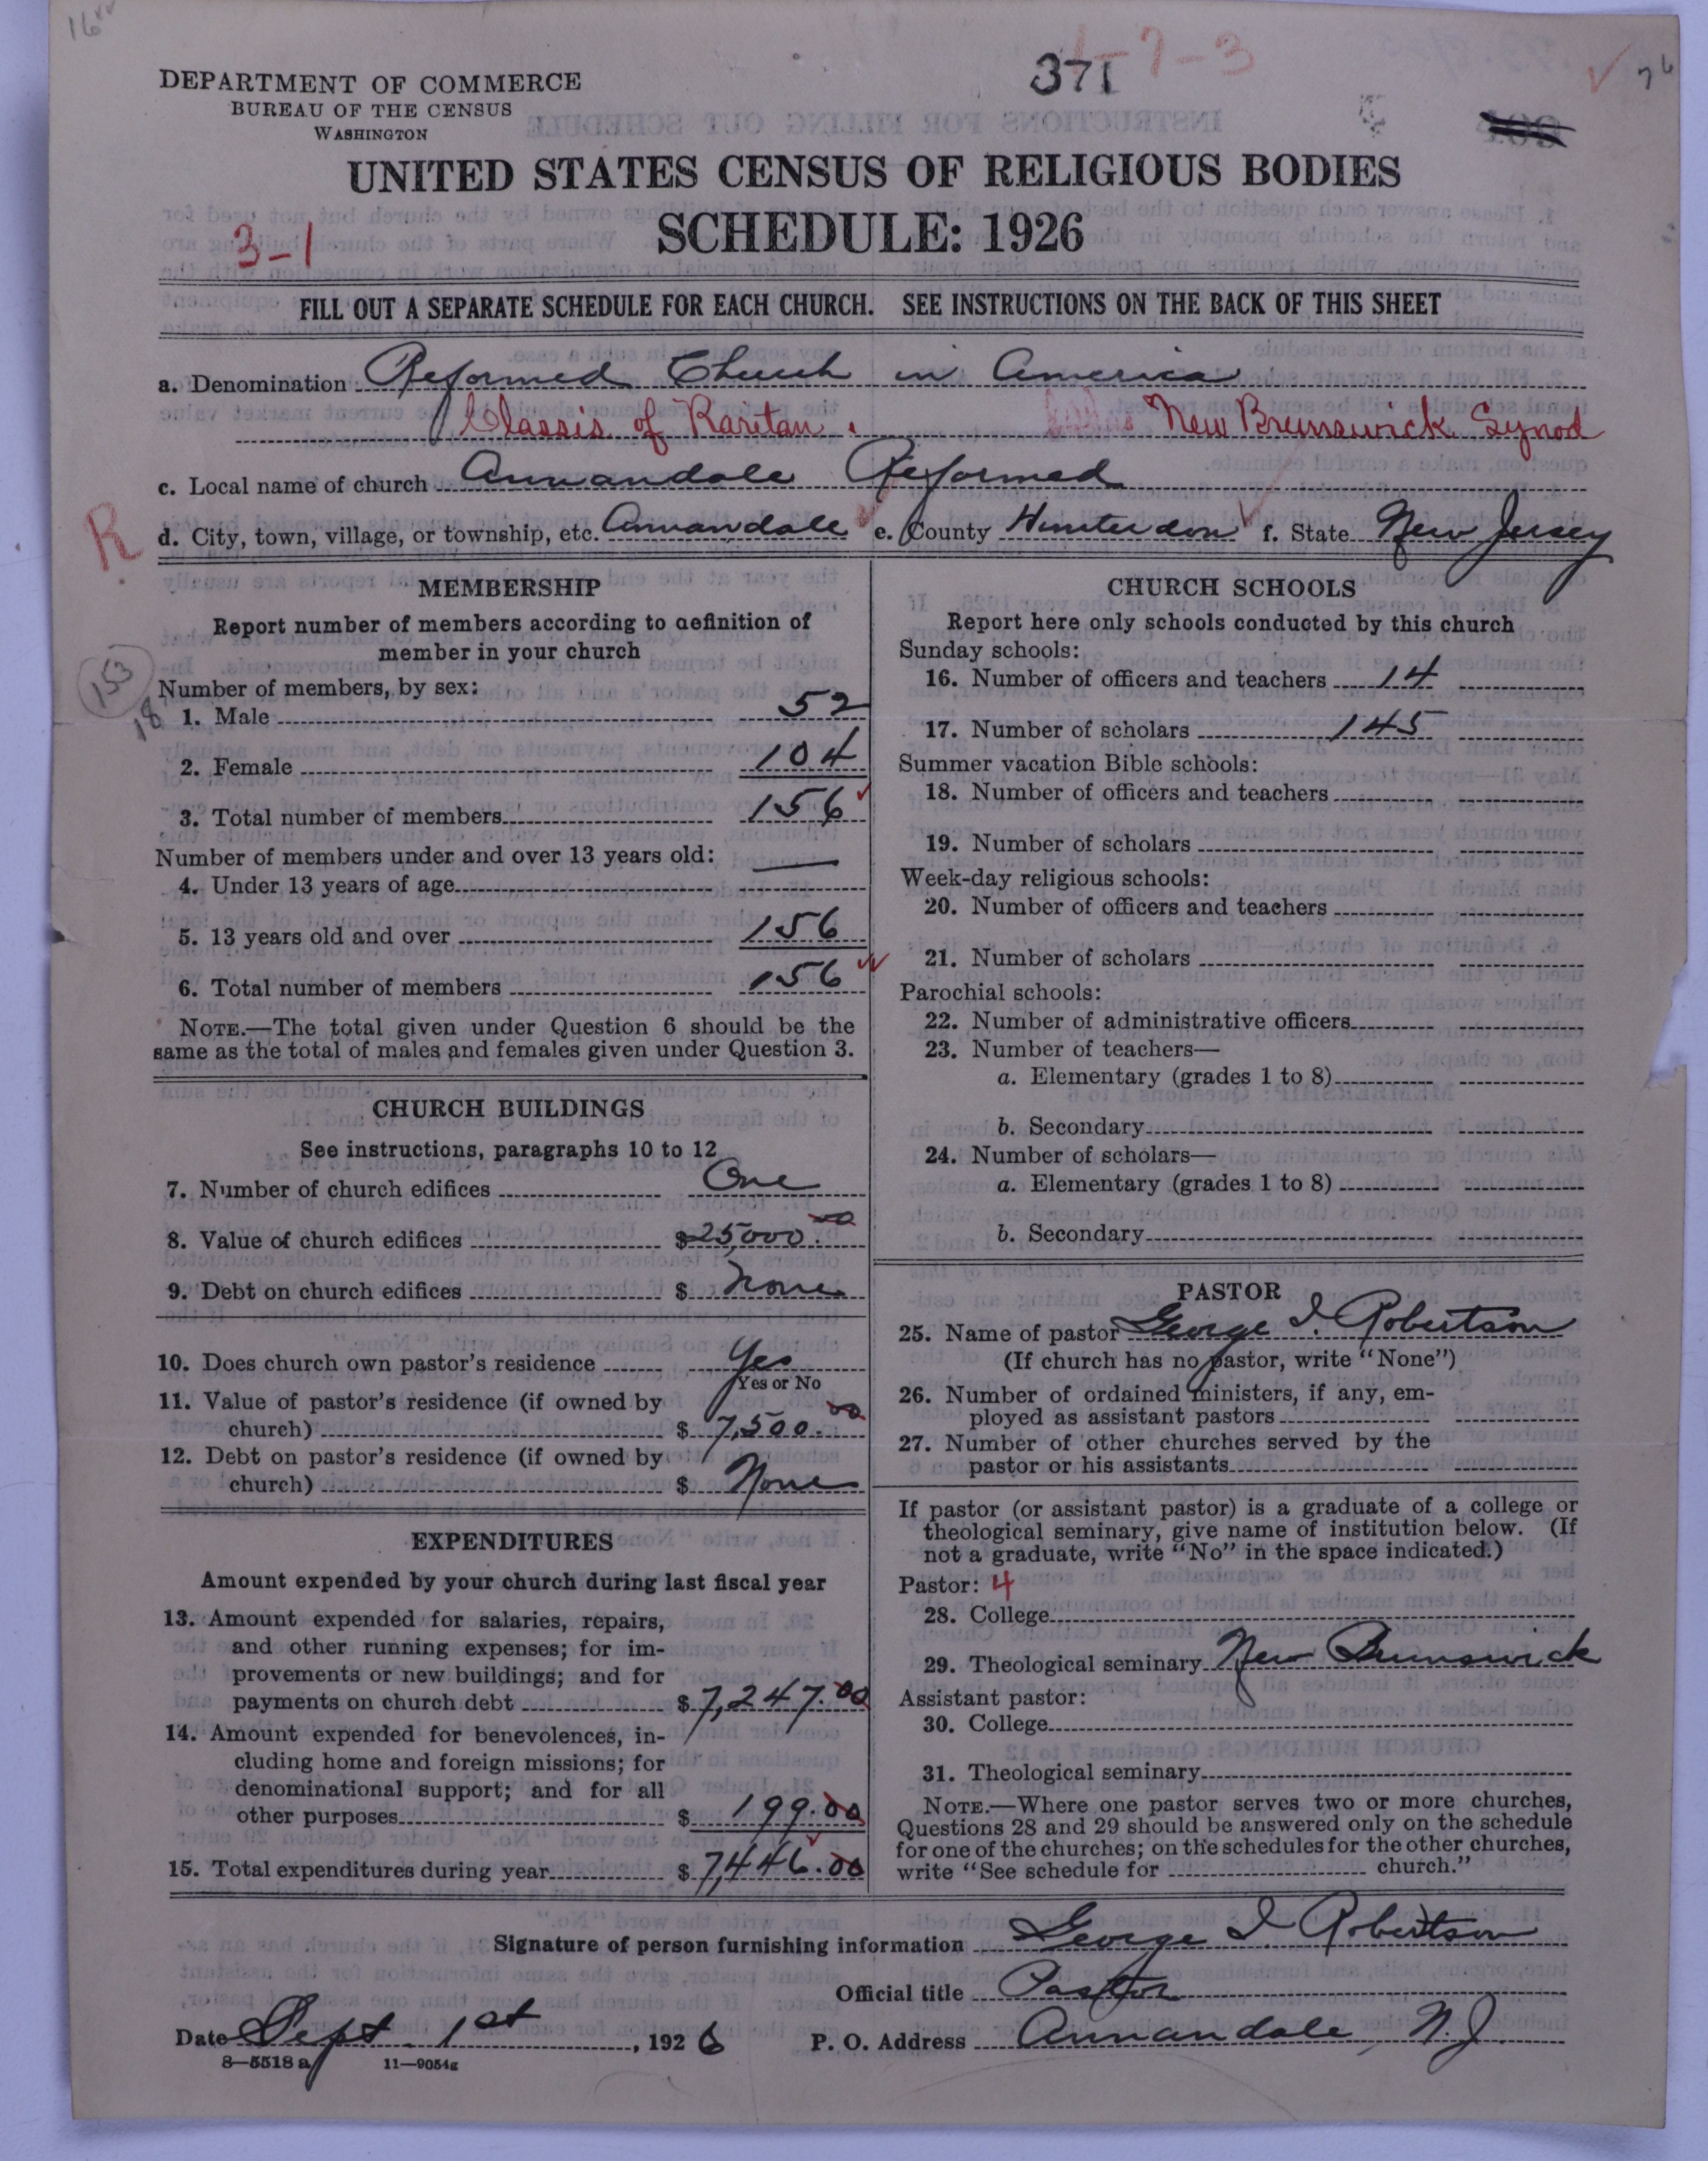 16
371
1-7-3
76
DEPARTMENT OF COMMERCE
BUREAU OF THE CENSUS
WASHINGTON
UNITED STATES CENSUS OF RELIGIOUS BODIES
SCHEDULE: 1926
3-1
FILL OUT A SEPARATE SCHEDULE FOR EACH CHURCH. SEE INSTRUCTIONS ON THE BACK OF THIS SHEET
a. Denomination Reformed Church in America
Classis of Raritan. New Brunswick Synod
c. Local name of church Annandale Reformed
R
d. City, town, village, or township, etc. Annandale e. County Hunterdon f. State New Jersey
MEMBERSHIP
Report number of members according to definition of
member in your church
153
18
Number of members, by sex:
1. Male 52
2. Female 104
3. Total number of members 156
Number of members under and over 13 years old:
4. Under 13 years of age —
5. 13 years old and over 156
6. Total number of members 156
NOTE.—The total given under Question 6 should be the
same as the total of males and females given under Question 3.
CHURCH BUILDINGS
See instructions, paragraphs 10 to 12
7. Number of church edifices One
8. Value of church edifices $25,000.00
9. Debt on church edifices $ None
10. Does church own pastor's residence Yes
Yes or No
11. Value of pastor's residence (if owned by
church) $ 7,500.00
12. Debt on pastor's residence (if owned by
church) $ None
EXPENDITURES
Amount expended by your church during last fiscal year
13. Amount expended for salaries, repairs,
and other running expenses; for im-
provements or new buildings; and for
payments on church debt $7,247.00
14. Amount expended for benevolences, in-
cluding home and foreign missions; for
denominational support; and for all
other purposes $ 199.00
15. Total expenditures during year $7,446.00
CHURCH SCHOOLS
Report here only schools conducted by this church
Sunday schools:
16. Number of officers and teachers 14
17. Number of scholars 145
Summer vacation Bible schools:
18. Number of officers and teachers
19. Number of scholars
Week-day religious schools:
20. Number of officers and teachers
21. Number of scholars
Parochial schools:
22. Number of administrative officers
23. Number of teachers—
a. Elementary (grades 1 to 8)
b. Secondary
24. Number of scholars—
a. Elementary (grades 1 to 8)
b. Secondary
PASTOR
25. Name of pastor George I. Robertson
(If church has no pastor, write "None")
26. Number of ordained ministers, if any, em-
ployed as assistant pastors
27. Number of other churches served by the
pastor or his assistants
If pastor (or assistant pastor) is a graduate of a college or
theological seminary, give name of institution below. (If
not a graduate, write "No" in the space indicated.)
Pastor: 4
28. College
29. Theological seminary New Brunswick
Assistant pastor:
30. College
31. Theological seminary
NOTE.—Where one pastor serves two or more churches,
Questions 28 and 29 should be answered only on the schedule
for one of the churches; on the schedules for the other churches,
write "See schedule for church."
Signature of person furnishing information George I. Robertson
Official title Pastor
Date Sept. 1st, 1926 P. O. Address Annandale, N.J.
8—5518 a 11—9054g